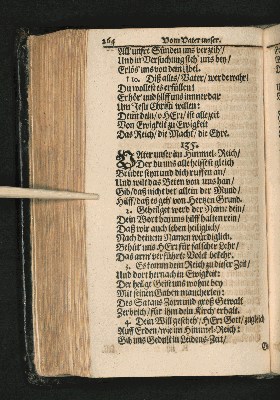 264 Vom Vater unser.
All unsre Sünden uns verzeih/
Und in Versuchung steh' uns bey/
Erlös' uns von dem Übel.
10. Diß alles/ Vater/ werde wahr!
Du wollest es erfüllen!
Erhör' und hilff uns immerdar
Um Jesu Christi willen:
Denn dein/ o HErr/ ist allezeit
Von Ewigkeit zu Ewigkeit
Das Reich/ die Macht/ die Ehre.
135.
VAter unser im Himmel-Reich/
Der du uns alle heissest gleich
Brüder seyn und dich ruffen an/
Und wilt das Beten von uns han/
Gib/ daß nicht bet' allein der Mund/
Hilff/ daß es geh' von Hertzen Grund.
2. Geheilget werd' der Name dein/
Dein Wort bey uns hilff halten rein/
Daß wir auch leben heiliglich/
Nach deinem Namen würdiglich.
Behüt' uns HErr für falscher Lehr/
Das arm' verführte Volck bekehr.
3. Es komm dein Reich zu dieser Zeit/
Und dort hernach in Ewigkeit:
Der heilge Geist uns wohne bey
Mit seinen Gaben mancherley:
Des Satans Zorn und groß Gewalt
Zerbrich/ für ihm dein Kirch' erhalt.
4. Dein Will gescheh'/ HErr Gott/ zugleich
Auff Erden/ wie im Himmel-Reich:
Gib uns Gedult in Leidens-Zeit/